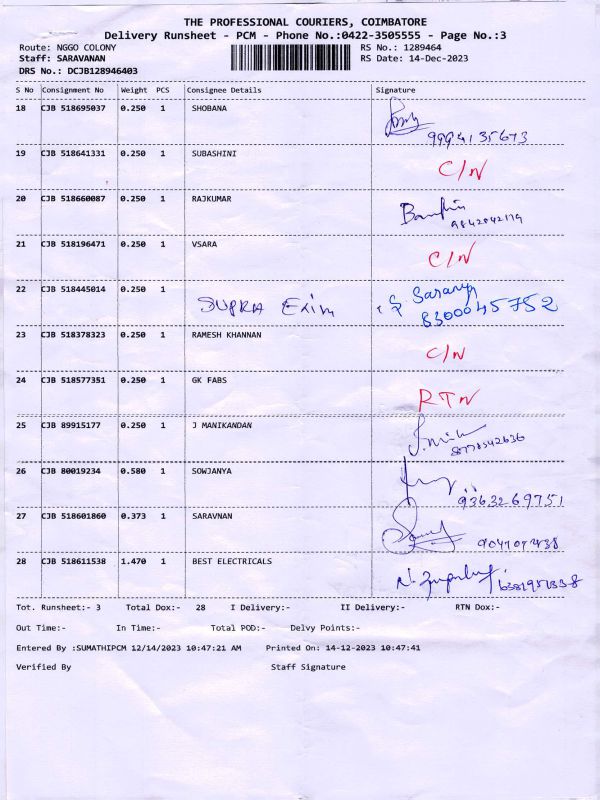 THE PROFESSIONAL COURIERS, COIMBATORE
Delivery Runsheet - PCM - Phone No.:0422-3505555 - Page No.:3
Route: NGGO COLONY RS No.: 1289464
Staff: SARAVANAN RS Date: 14-Dec-2023
DRS No.: DCJB128946403
S No Consignment No Weight PCS Consignee Details Signature
18 CJB 518695037 0.250 1 SHOBANA
9994135673
19 CJB 518641331 0.250 1 SUBASHINI C/N
20 CJB 518660087 0.250 1 RAJKUMAR
9842842119
21 CJB 518196471 0.250 1 VSARA C/N
22 CJB 518445014 0.250 1 SUPRA Exim Saranya
8300045752
23 CJB 518378323 0.250 1 RAMESH KHANNAN C/N
24 CJB 518577351 0.250 1 GK FABS RTN
25 CJB 89915177 0.250 1 J MANIKANDAN
26 CJB 80019234 0.580 1 SOWJANYA
9363269751
27 CJB 518601860 0.373 1 SARAVNAN
28 CJB 518611538 1.470 1 BEST ELECTRICALS
Tot. Runsheet:- 3 Total Dox:- 28 I Delivery:- II Delivery:- RTN Dox:-
Out Time:- In Time:- Total POD:- Delvy Points:-
Entered By :SUMATHIPCM 12/14/2023 10:47:21 AM Printed On: 14-12-2023 10:47:41
Verified By Staff Signature